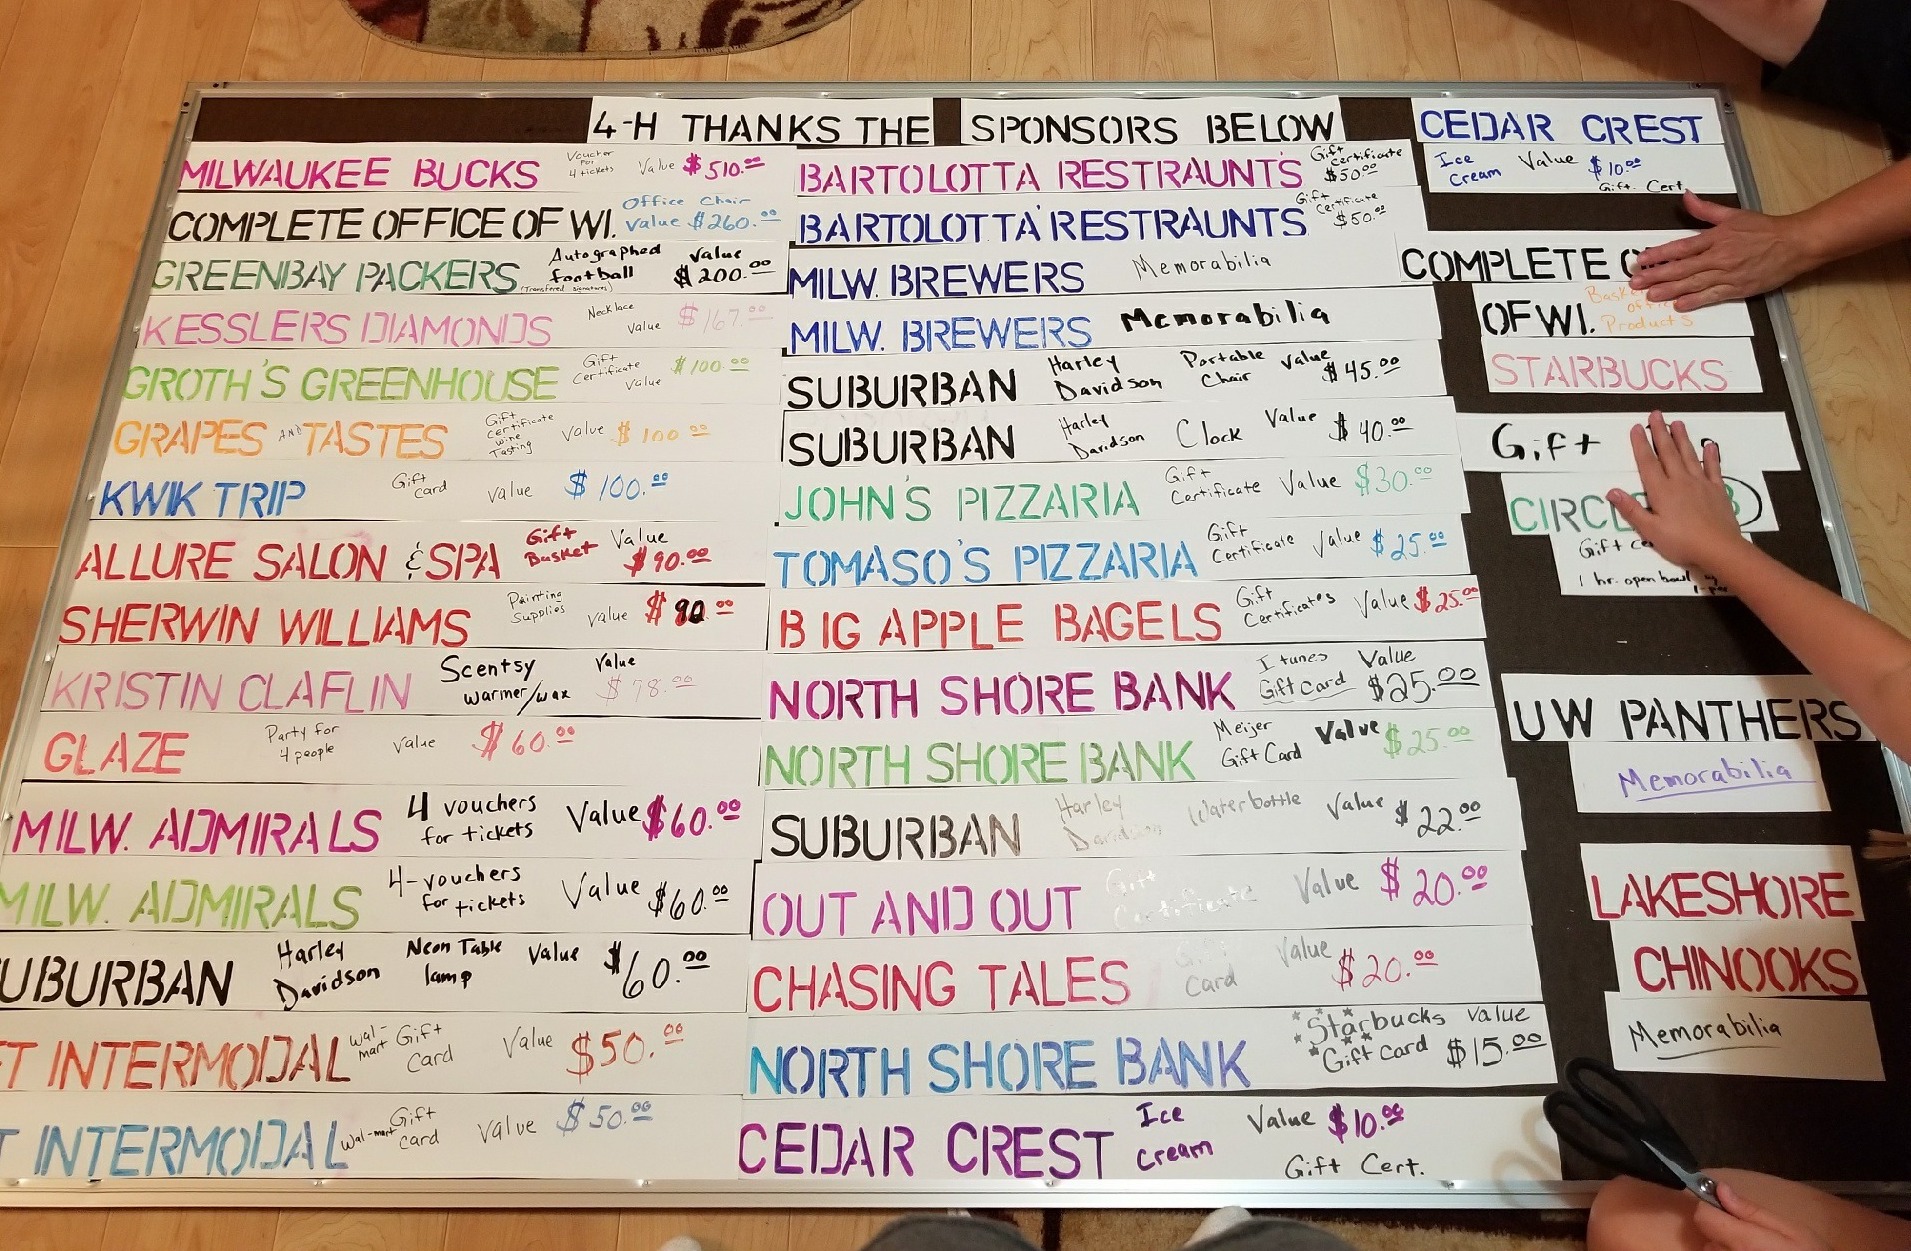 4-H THANKS THE SPONSORS BELOW
MILWAUKEE BUCKS Voucher for 4 tickets Value $510.00
COMPLETE OFFICE OF WI. Office Chair Value $260.00
GREENBAY PACKERS Autographed football (Transfered signatures) Value $200.00
KESSLERS DIAMONDS Necklace Value $167.00
GROTH'S GREENHOUSE Gift Certificate Value $100.00
GRAPES AND TASTES Gift Certificate Wine Tasting Value $100.00
KWIK TRIP Gift Card Value $100.00
ALLURE SALON & SPA Gift Basket Value $90.00
SHERWIN WILLIAMS Painting Supplies Value $90.00
KRISTIN CLAFLIN Scentsy warmer/wax Value $78.00
GLAZE Party for 4 people Value $60.00
MILW. ADMIRALS 4 vouchers for tickets Value $60.00
MILW. ADMIRALS 4-vouchers for tickets Value $60.00
UBURBAN Harley Davidson Neon Table lamp Value $60.00
T INTERMODAL Wal-mart Gift Card Value $50.00
T INTERMODAL Wal-mart Gift Card Value $50.00
BARTOLOTTA RESTRAUNT'S Gift Certificate $50.00
BARTOLOTTA'RESTRAUNTS Gift Certificate $50.00
MILW. BREWERS Memorabilia
MILW. BREWERS Memorabilia
SUBURBAN Harley Davidson Portable Chair Value $45.00
SUBURBAN Harley Davidson Clock Value $40.00
JOHN'S PIZZARIA Gift Certificate Value $30.00
TOMASO'S PIZZARIA Gift Certificate Value $25.00
BIG APPLE BAGELS Gift Certificates Value $25.00
NORTH SHORE BANK Itunes Gift Card Value $25.00
NORTH SHORE BANK Meijer Gift Card Value $25.00
SUBURBAN Harley Davidson Waterbottle Value $22.00
OUT AND OUT Gift Certificate Value $20.00
CHASING TALES Gift Card Value $20.00
NORTH SHORE BANK Starbucks Gift Card Value $15.00
CEDAR CREST Ice Cream Value $10.00 Gift Cert.
CEDAR CREST
Ice Cream Value $10.00 Gift Cert.
COMPLETE
OF WI. Products
STARBUCKS
Gift
Gift
1 hr. open bowl
UW PANTHERS
Memorabilia
LAKESHORE
CHINOOKS
Memorabilia